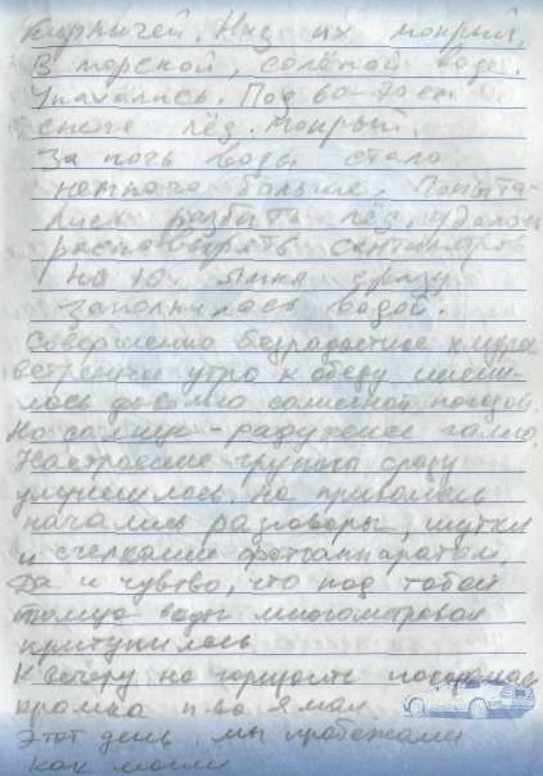 кирпичей. Низ их мокрый.
В морской, солёной воде.
Упахались. Под 60-70 см
снега лёд. Мокрый.
За ночь воды стало
немного больше. Попыта-
лись разбить лёд, удалось
расковырять сантиметров
на 10. Ямка сразу
заполнилась водой.
Совершенно безрадостное хмурое
утро к обеду смени-
лось довольно солнечной погодой.
На солнце - радужное гало.
Настроение группы сразу
улучшилось. На привалах
начались разговоры, шутки
и счелкание фотоаппаратом.
Да и чувство, что под тобой
толща воды многометровая
притупилось.
К вечеру на горизонте показалась
кромка п-ва Ямал.
Этот день мы пробежали
как могли